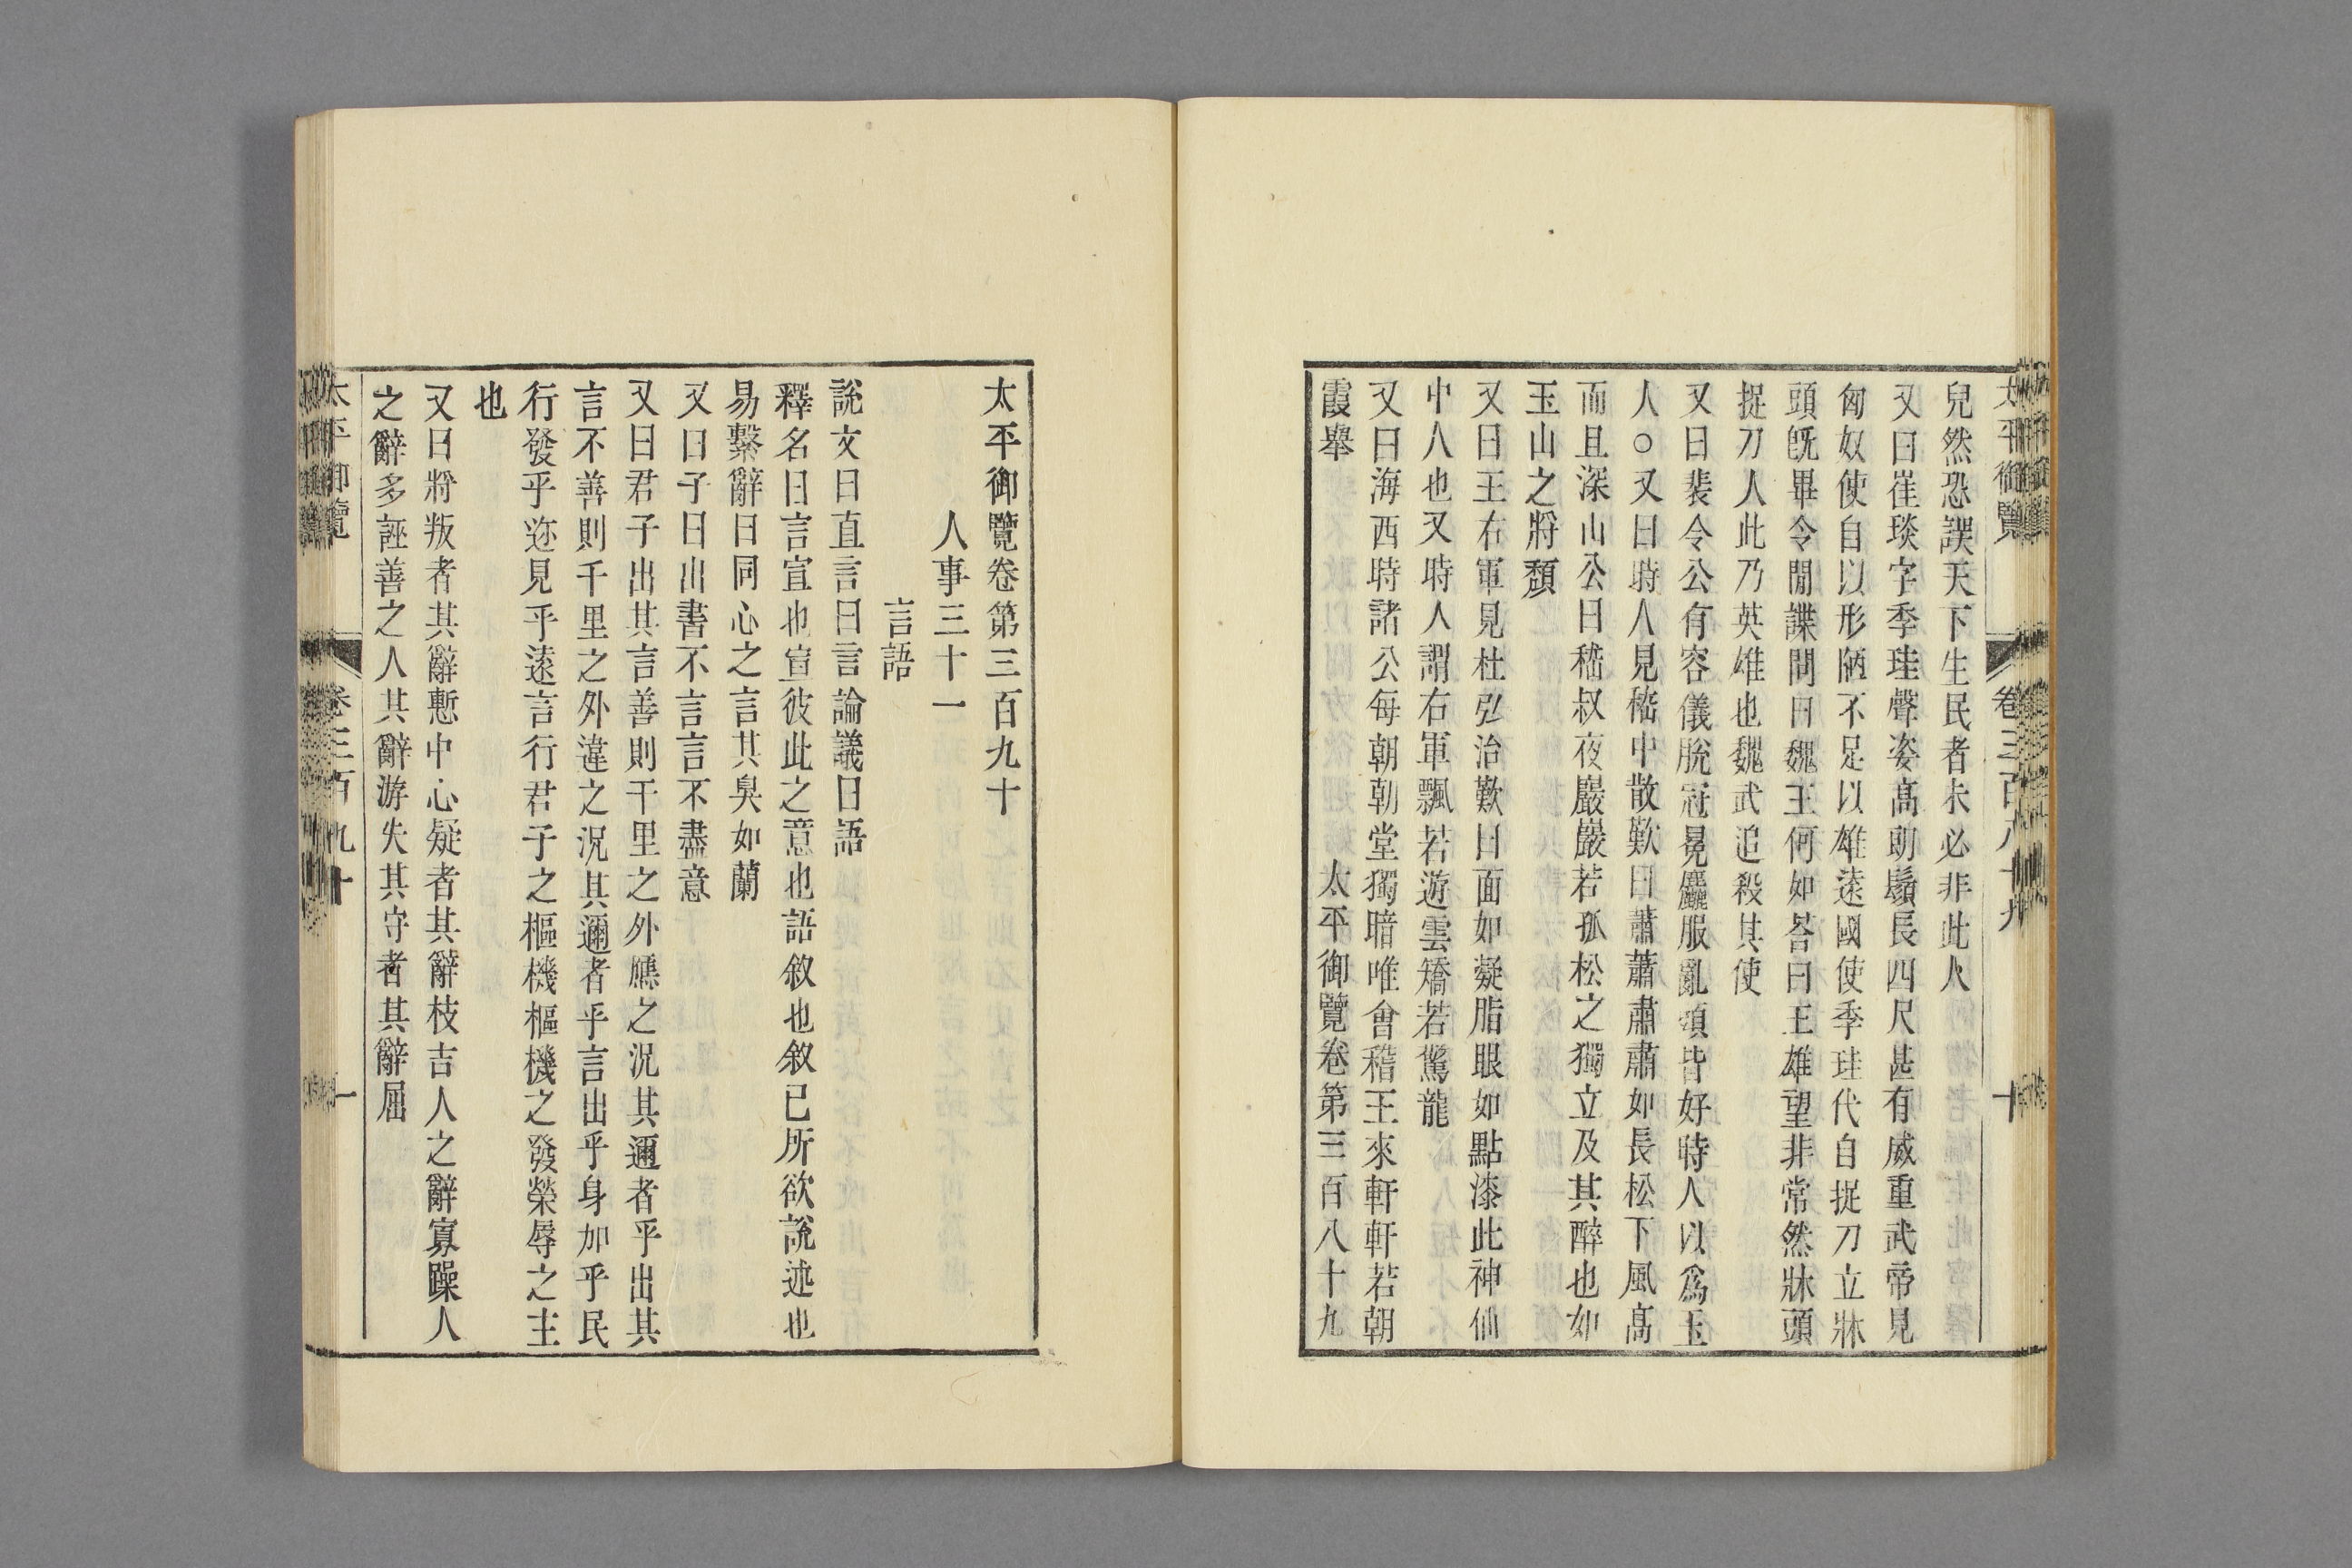 太平御覽 卷三百八十九 十
兒然恐誤天下生民者未必非此人
又曰崔琰字季珪聲姿髙朗鬚長四尺甚有威重武帝見
匈奴使自以形陋不足以雄遠國使季珪代自捉刀立牀
頭旣畢令閒諜問曰魏王何如荅曰王雄望非常然牀頭
捉刀人此乃英雄也魏武追殺其使
又曰裴令公有容儀脫冠冕麤服亂頭皆好時人以爲玉
人○又曰時人見嵇中散歎曰蕭蕭肅肅如長松下風髙
而且深山公曰嵇叔夜巖巖若孤松之獨立及其醉也如
玉山之將頽
又曰王右軍見杜弘治歎曰面如凝脂眼如點漆此神仙
中人也又時人謂右軍飄若遊雲矯若驚龍
又曰海西時諸公每朝朝堂獨暗唯會稽王來軒軒若朝
霞舉 太平御覽卷第三百八十九
太平御覽卷第三百九十
人事三十一
言語
說文曰直言曰言論議曰語
釋名曰言宣也宣彼此之意也語敘也敘已所欲說述也
易繫辭曰同心之言其臭如蘭
又曰子曰出書不言言不盡意
又曰君子出其言善則千里之外應之況其邇者乎出其
言不善則千里之外違之況其邇者乎言出乎身加乎民
行發乎迩見乎遠言行君子之樞機樞機之發榮辱之主
也
又曰將叛者其辭慙中心疑者其辭枝吉人之辭寡躁人
之辭多誣善之人其辭游失其守者其辭屈
太平御覽 卷三百九十 一